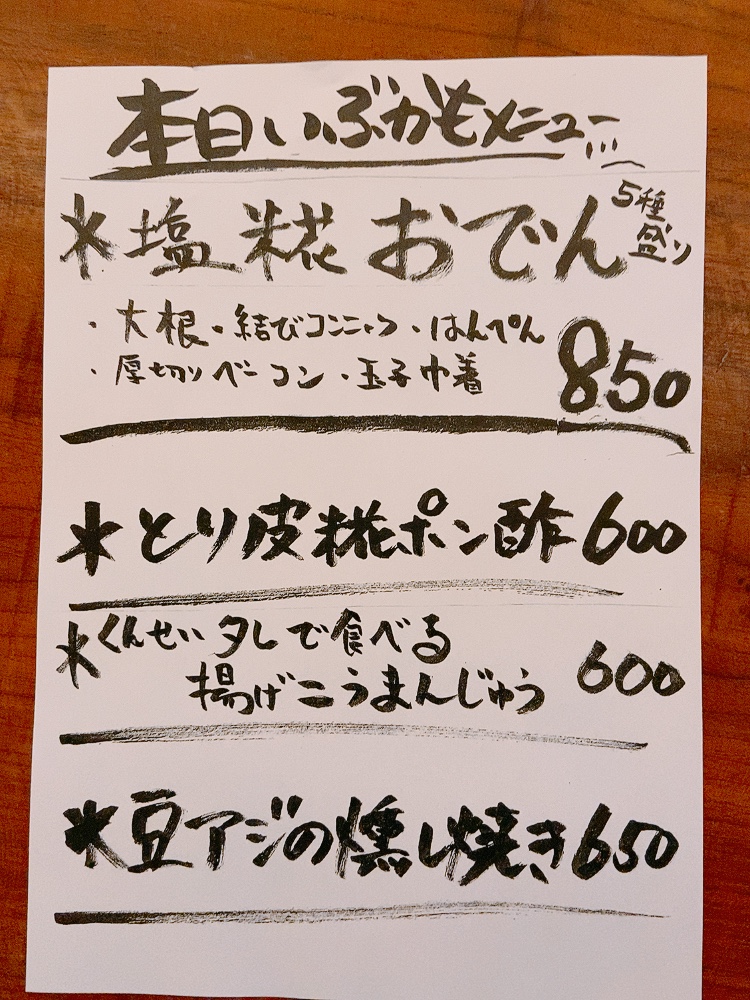 本日いぶかもメニュー
*塩糀おでん 5種盛り
・大根・結びコンニャク・はんぺん
・厚切りベーコン・玉子巾着 850
*とり皮糀ポン酢 600
*くんせいタレで食べる
揚げこうまんじゅう 600
*豆アジの燻し焼き 650